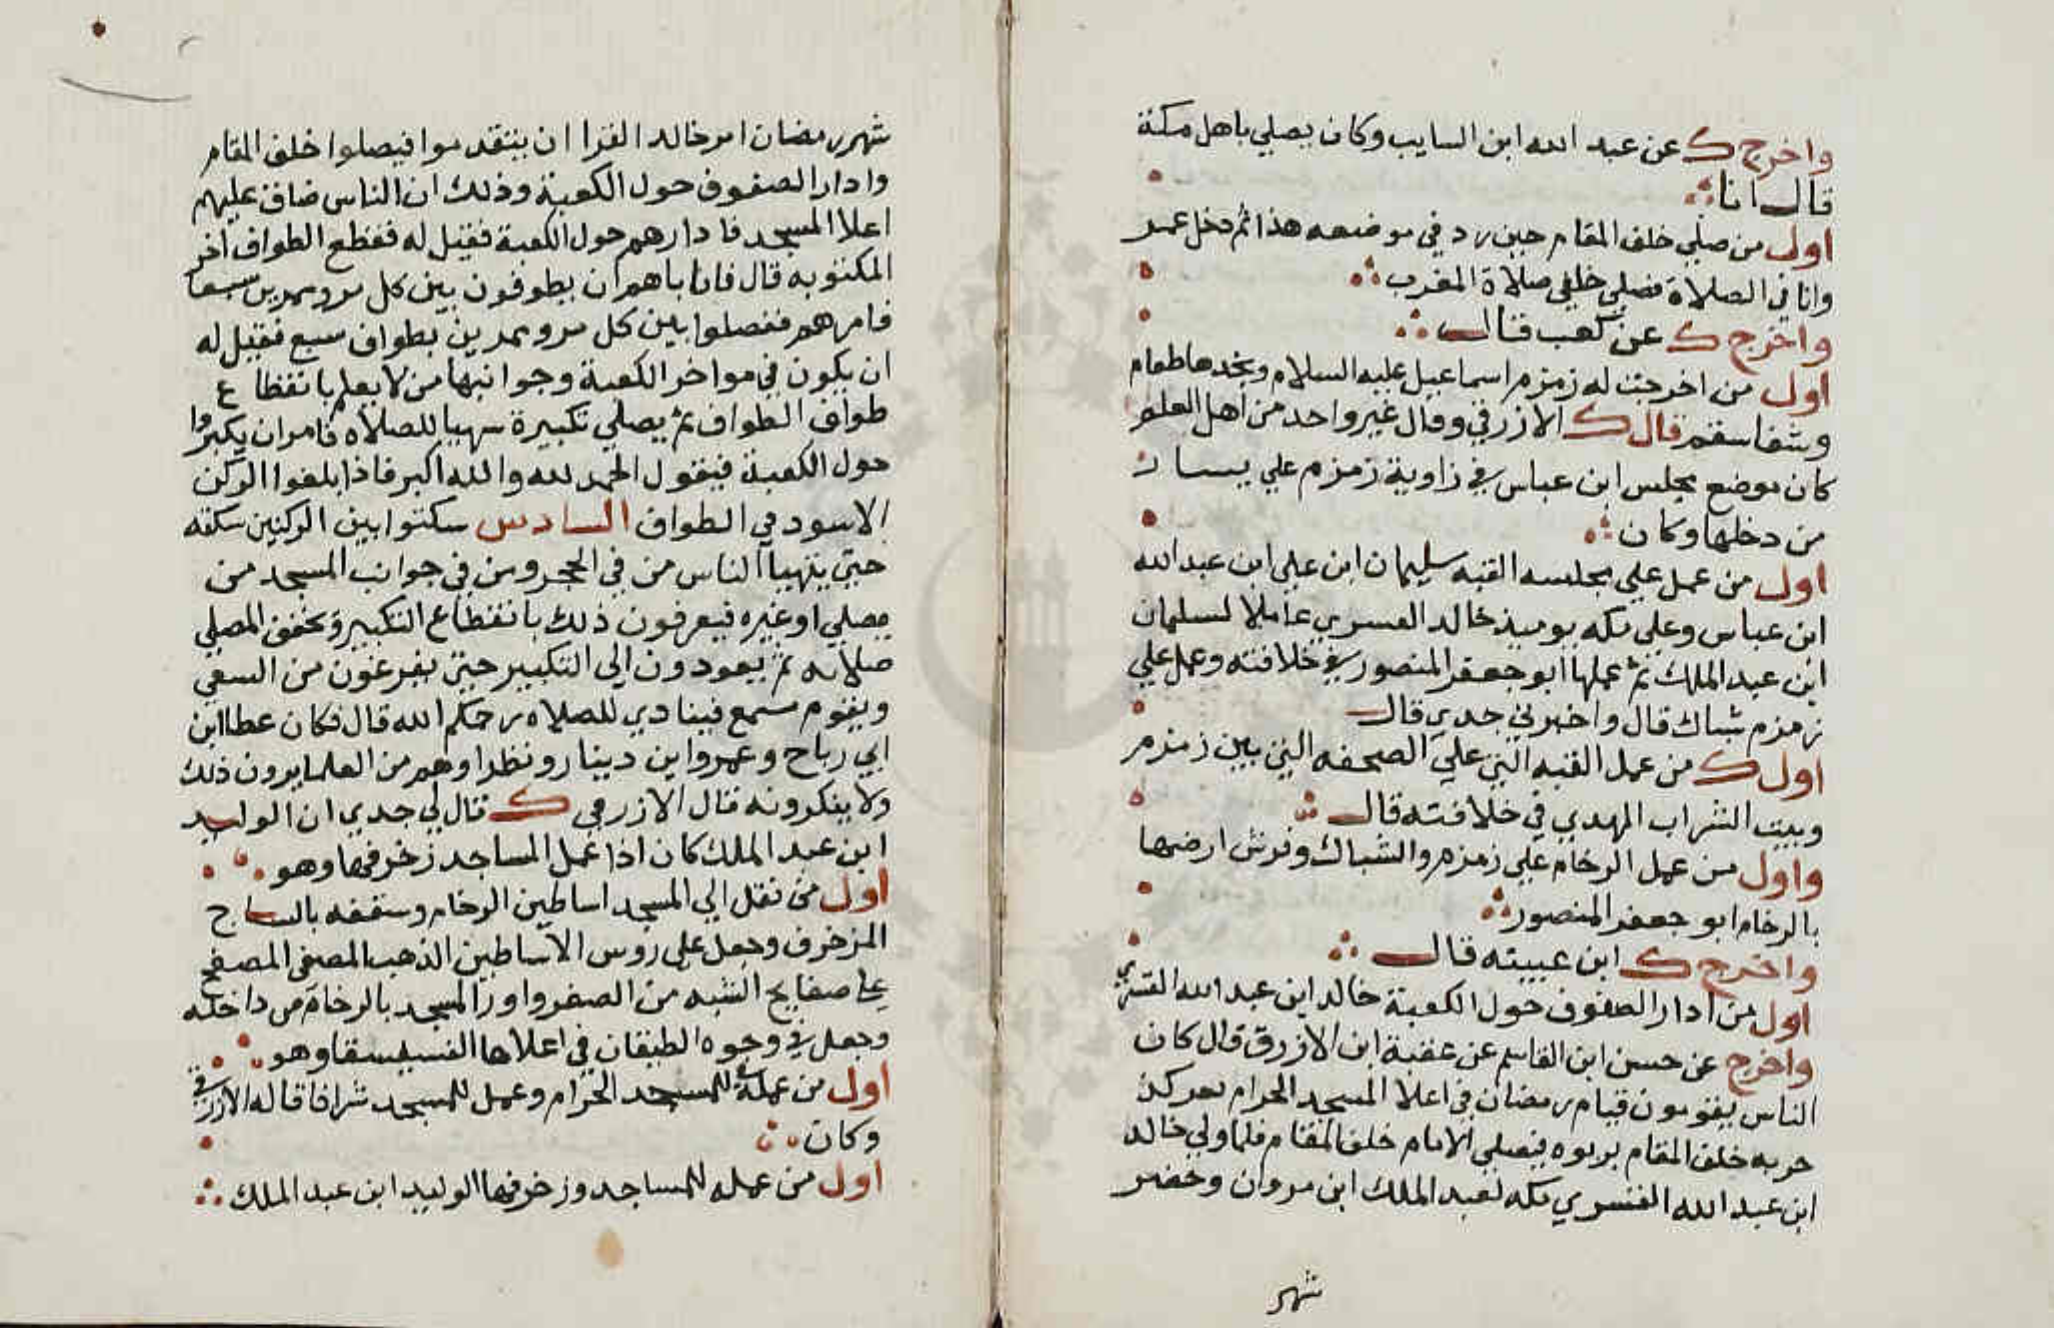 واخرج ك عن عبد الله ابن السايب وكان يصلي باهل مكة
قال انا
اول من صلي خلف المقام حين رد في موضعه هذا ثم دخل عمر
وانا في الصلاة فصلي خلفي صلاة المغرب
واخرج ك عن كعب قال
اول من اخرجت له زمزم اسماعيل عليه السلام ويجدها طعام
وشفا سقم قال ك الازرقي وقال غير واحد من اهل العلم
كان موضع مجلس ابن عباس في زاوية زمزم علي يسار
من دخلها وكان
اول من عمل علي مجلسه القبه سليمان ابن علي ابن عبد الله
ابن عباس وعلي مكه يوميذ خالد القسري عاملا لسليمان
ابن عبد الملك ثم عملها ابو جعفر المنصور في خلافته وعمل علي
زمزم شباك قال واخبرني جدي قال
اول ك من عمل القبه التي علي الصحفه التي بين زمزم
وبيت الشراب المهدي في خلافته قال
واول من عمل الرخام علي زمزم والشباك وفرش ارضها
بالرخام ابو جعفر المنصور
واخرج ك ابن عيينه قال
اول من ادار الصفوف حول الكعبة خالد ابن عبد الله القسري
واخرج عن حسن ابن القاسم عن عقبة ابن الازرق قال كان
الناس يقومون قيام رمضان في اعلا المسجد الحرام تركز
حربه خلف المقام بربوه فيصلي الامام خلف المقام فلما ولي خالد
ابن عبد الله القسري مكه لعبد الملك ابن مروان وحضر
شهر
شهر رمضان امر خالد القرا ان يتقدموا فيصلوا خلف المقام
وادار الصفوف حول الكعبة وذلك ان الناس ضاق عليهم
اعلا المسجد فادارهم حول الكعبة فقيل له فقطع الطواف اخر
المكتوبه قال فانا باهم ان يطوفون بين كل ترويحتين سبعا
فامرهم ففصلوا بين كل ترويحتين بطواف سبع فقيل له
ان يكون في مواخر الكعبة وجوانبها من لا يعلم بانقطاع
طواف الطواف ثم يصلي تكبيرة سهيا للصلاه فامر ان يكبروا
حول الكعبة فيقول الحمد لله والله اكبر فاذا بلغوا الركن
الاسود في الطواف السادس سكتوا بين الركنين سكته
حتي يتهيا الناس من في الحجر ومن في جوانب المسجد من
مصلي او غيره فيعرفون ذلك بانقطاع التكبير ويخفف المصلي
صلاته ثم يعودون الي التكبير حتي يفرغون من السعي
ويقوم مسمع فينادي للصلاه رحمكم الله قال فكان عطا ابن
ابي رباح وعمرو ابن دينار ونظراوهم من العلما يرون ذلك
ولا ينكرونه قال الازرقي ك قال لي جدي ان الوليد
ابن عبد الملك كان اذا عمل المساجد زخرفها وهو
اول من نقل الي المسجد اساطين الرخام وسقفه بالساج
المزخرف وجعل علي روس الاساطين الذهب المصفي المصفح
علي صفايح الشبه من الصفر وازر المسجد بالرخام من داخله
وجعل في وجوه الطيقان في اعلاها الفسيفسقا وهو
اول من عمله للمسجد الحرام وعمل للمسجد شرافا قاله الازرقي
وكان
اول من عمله للمساجد وزخرفها الوليد ابن عبد الملك